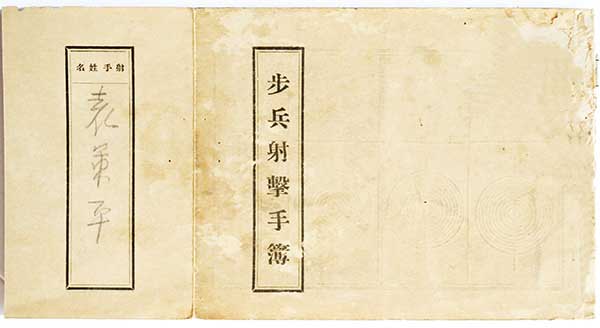 步兵射擊手簿
射手姓名
袁 平